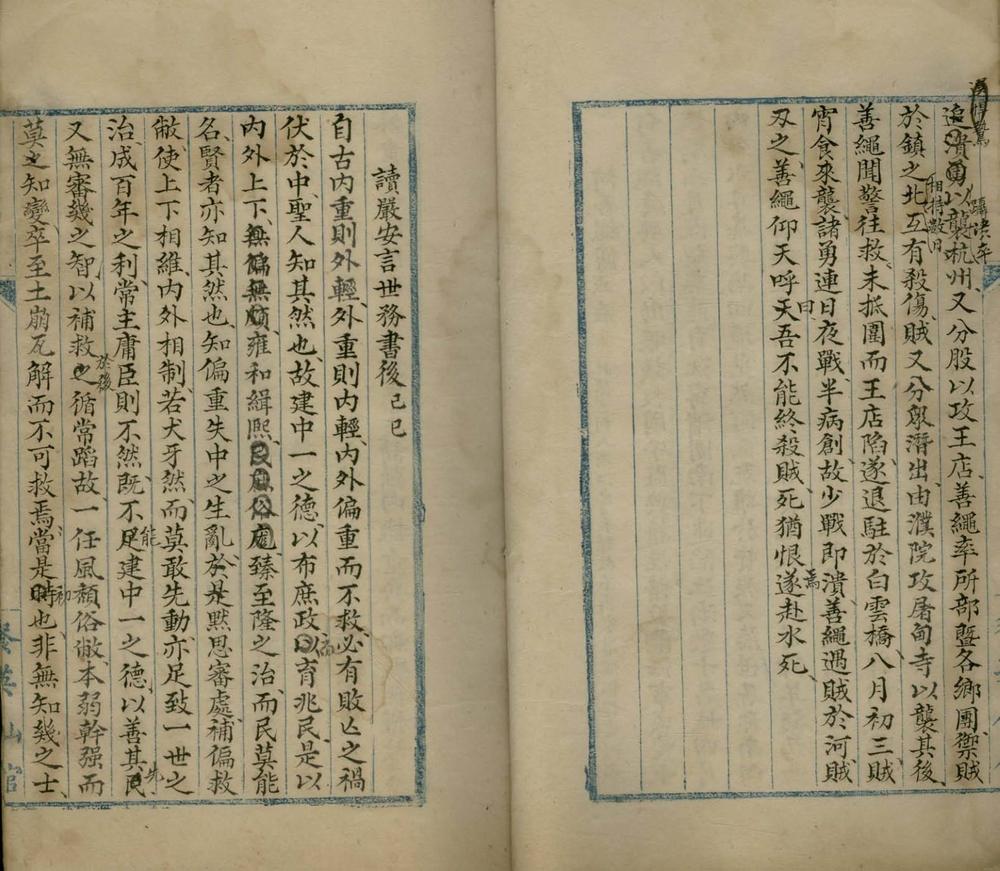 追潰勇以襲杭州又分股以攻王店善繩率所部暨各鄉團禦賊
於鎮之北互有殺傷賊又分眾潛出由濮院攻屠甸寺以襲其後
相持數日
善繩聞警往救未抵圍而王店陷遂退駐於白雲橋八月初三賊
宵食來襲諸勇連日夜戰半病創故少戰即潰善繩遇賊於河賊
刃之善繩仰天呼天曰吾不能終殺賊死猶恨焉遂赴水死
讀嚴安言世務書後己巳
自古內重則外輕外重則內輕內外偏重而不救必有敗亡之禍
伏於中聖人知其然也故建中一之德以布庶政以育兆民是以
內外上下無偏無頗雍和緝熙民風俗臻至隆之治而民莫能
名賢者亦知其然也知偏重失中之生亂於是默思審處補偏救
敝使上下相維內外相制若犬牙然而莫敢先動亦足致一世之
治成百年之利常主庸臣則不然既不能足建中一之德以善其先民
又無審幾之智以補救之於後循常蹈故一任風頹俗敝本弱幹强而
莫之知變卒至土崩瓦解而不可救焉當是時初也非無知幾之士
山館